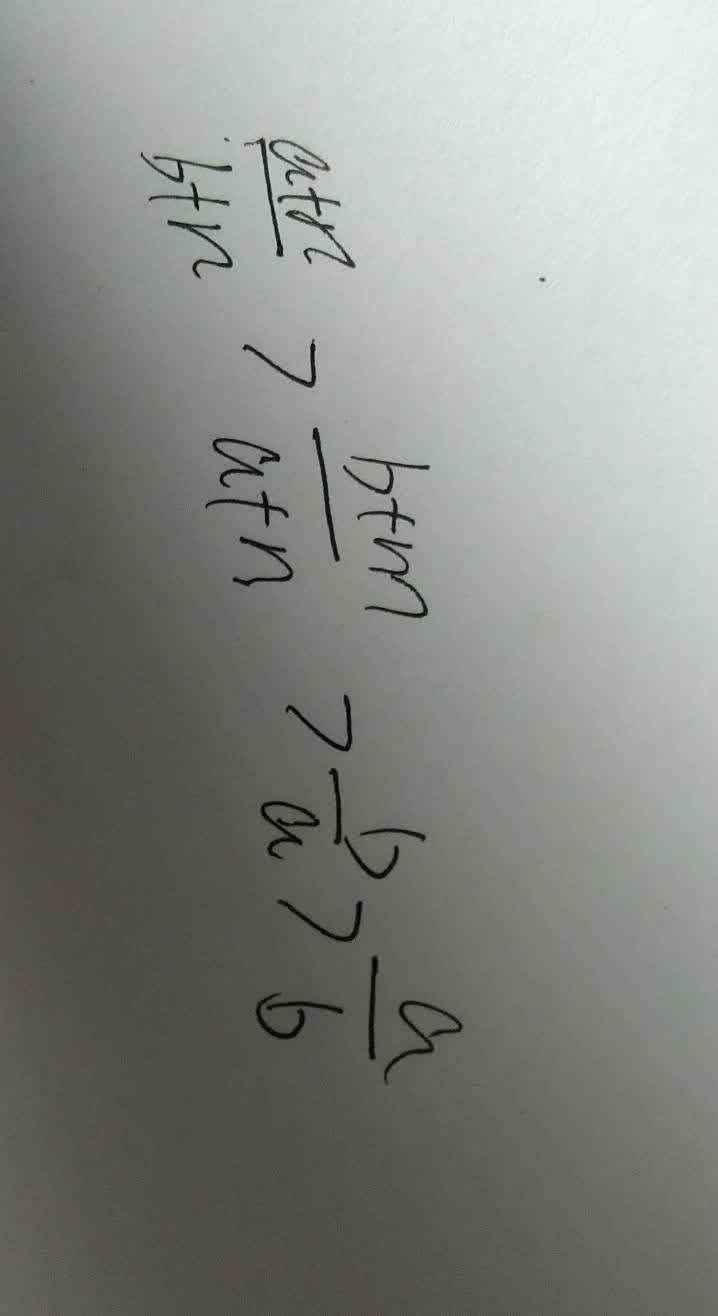 \frac{a+n}{b+n} > \frac{b+m}{a+n} > \frac{b}{a} > \frac{a}{b}